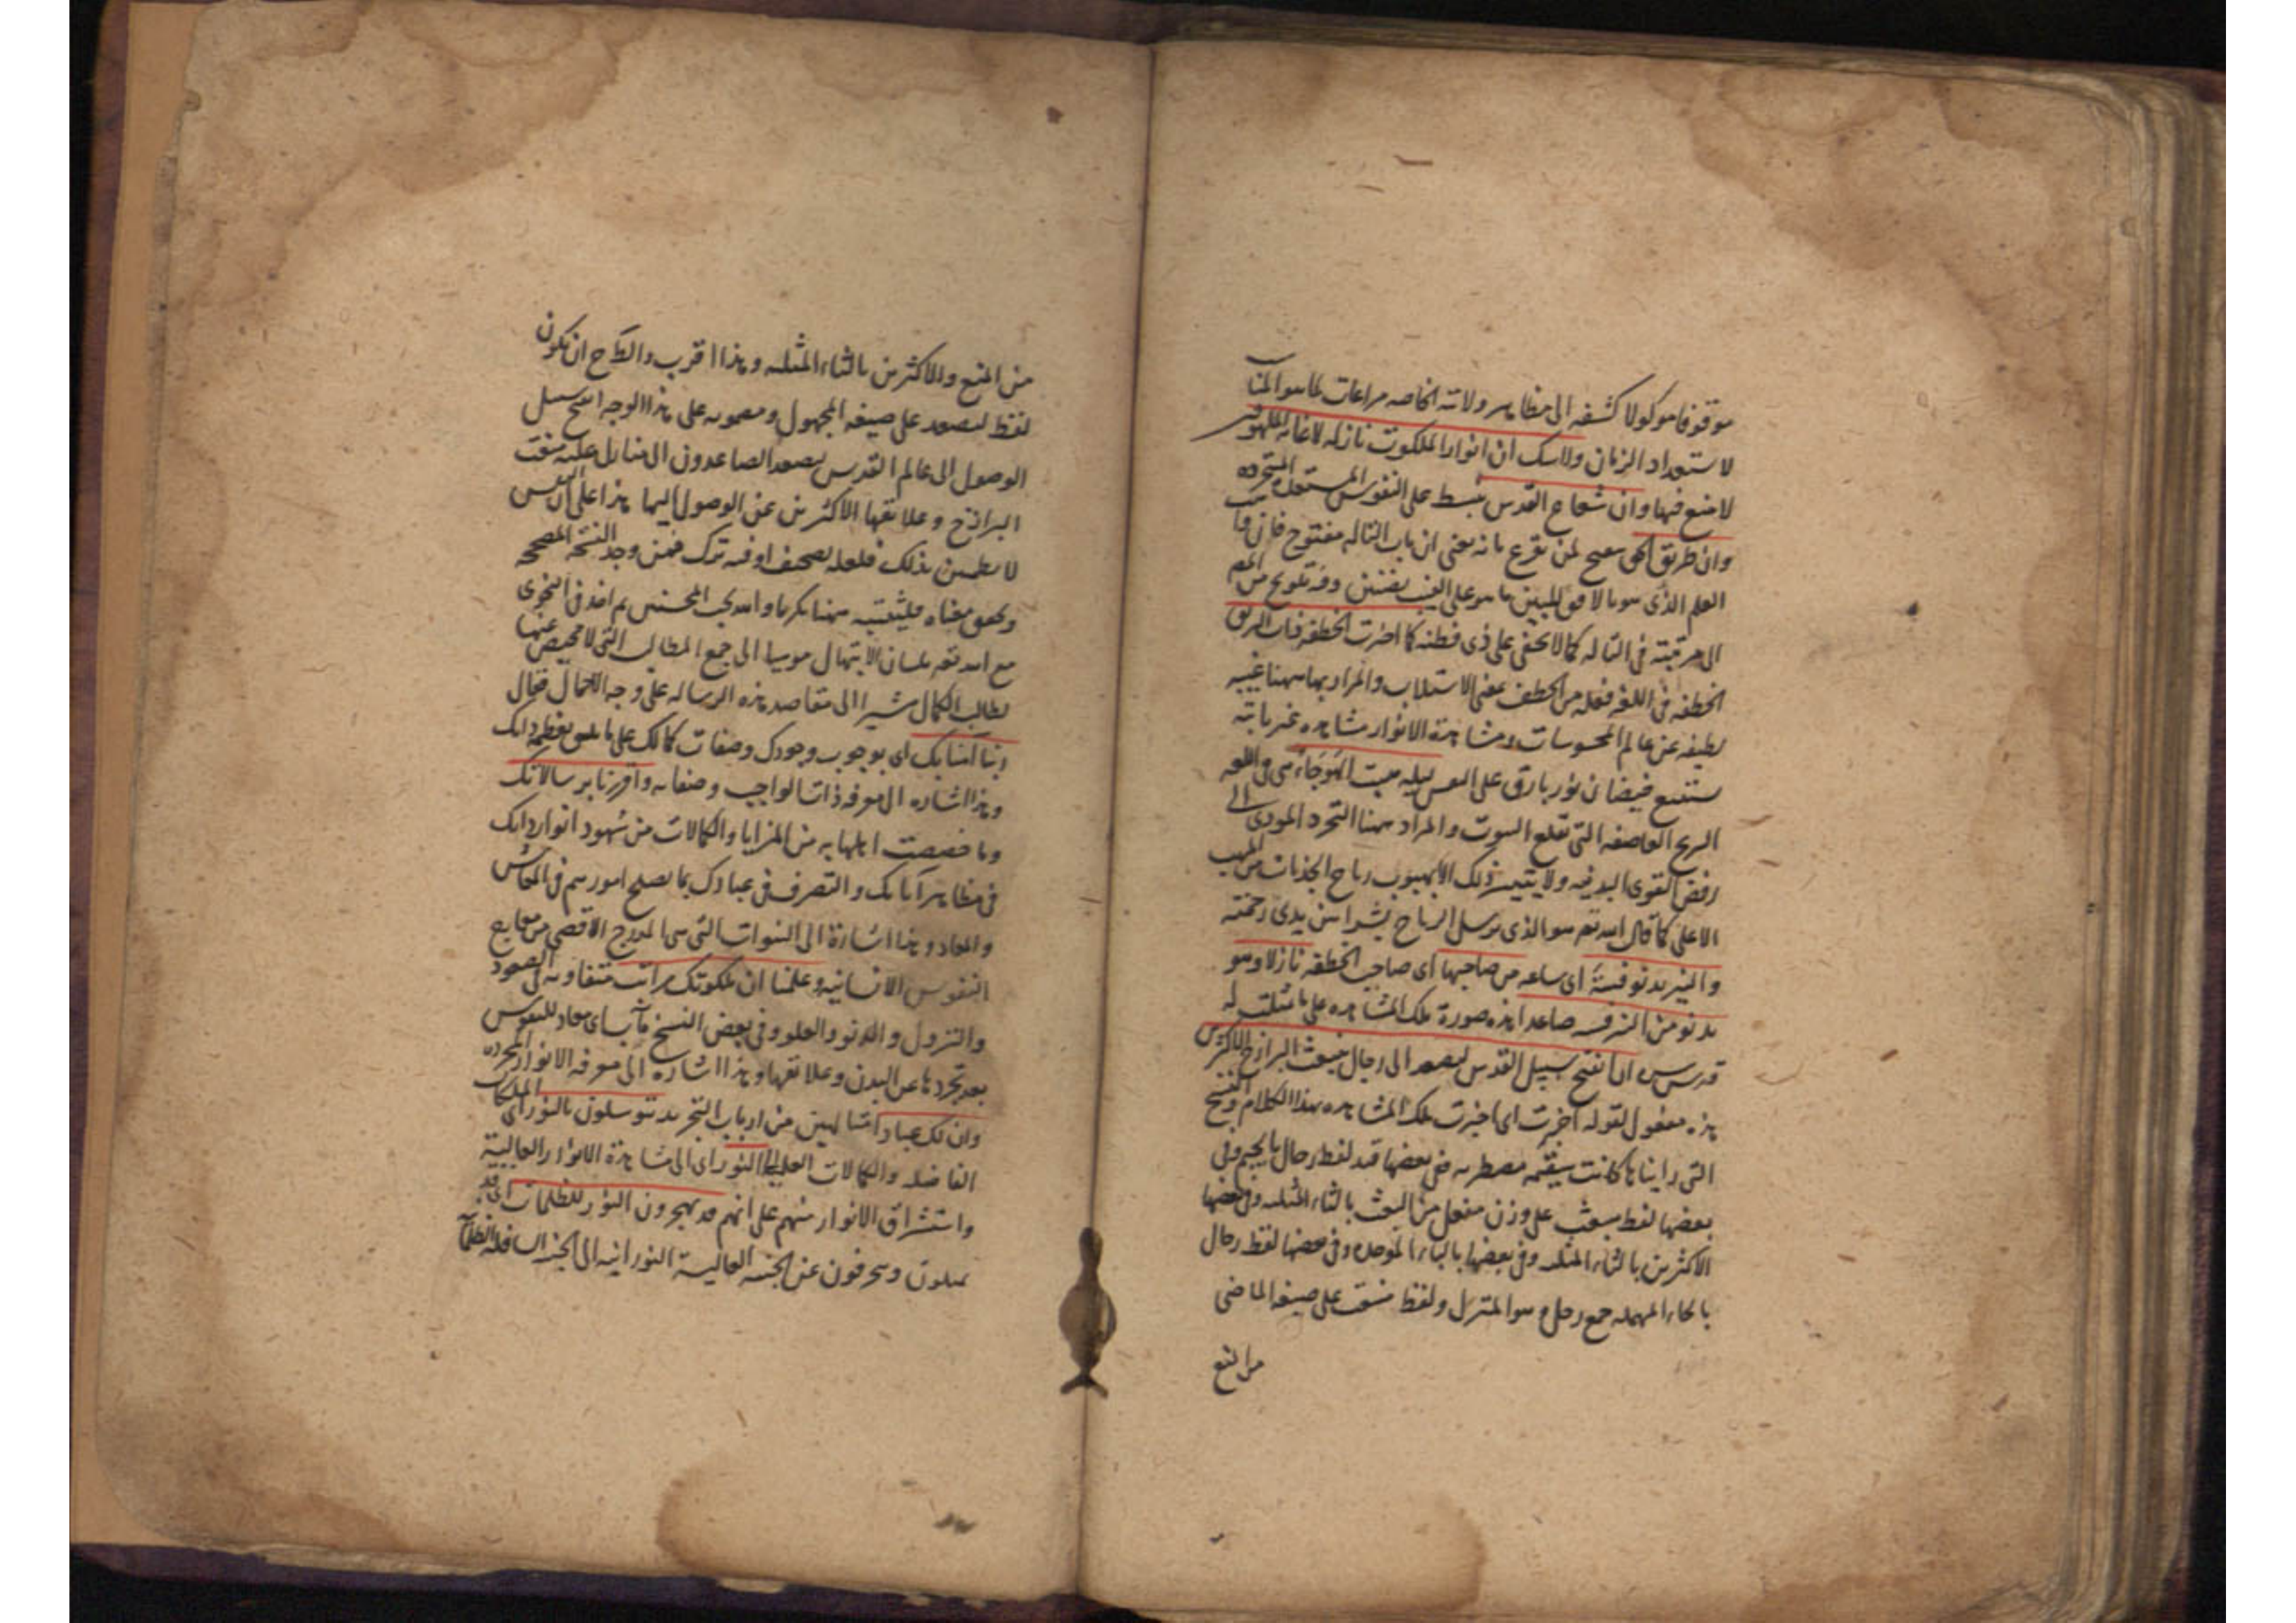 موقوفا موكولا كشفه الى مظاهر ولاته الخاصه مراعات لما هو المناسب
لاستعداد الزمان ولا شك ان انوار الملكوت نازله لاغاثه الملهوفين
لا منع فيها وان شعاع القدس ينبسط على النفوس المستعده المتجرده
وان طريق الحق ينفتح لمن يقرع بابه يعنى ان باب التاله مفتوح فان واهب
العلم الذى هو بالافق المبين ما هو على الغيب بضنين وفيه تلويح من المص
الى مرتبته فى التاله كما لا يخفى على ذى فطنه كما اخبرت الخطفه ذات البريق
الخطفه فى اللغه فعله من الخطف بمعنى الاستلاب والمراد بها ههنا غيبه
لطيفه عن عالم المحسوسات ومشاهدة الانوار مشاهده غير ثابته
تستتبع فيضان نور بارق على النفس ليله هبت الهوجاء هى فى اللغه
الريح العاصفه التى تقلع البيوت والمراد ههنا التجرد المودى الى
رفض القوى البدنيه ولا يتيسر ذلك الا بهبوب رياح الجذبات من المهب
الاعلى كما قال الله تعه هو الذى يرسل الرياح بشرا بين يدى رحمته
والنير يدنو فيئه اى ساعه من صاحبها اى صاحب الخطفه نازلا وهو
يدنو من النير صاعدا هذه صورة تلك المشاهده على ما مثلت له
قدس سره ان انفتح سبيل القدس ليصعد الى رجال منبعث البرازخ الاكثرين
هذه مفعول لقوله اخبرت اى اخبرت تلك المشاهده بهذا الكلام والنسخ
التى رايناها كانت سقيمه مضطربه ففى بعضها قيد لفظ رجال بالجيم وفى
بعضها لفظ منبعث على وزن منفعل من البعث بالثاء المثلثه وفى بعضها
الاكثرين بالثاء المثلثه وفى بعضها بالباء الموحده وفى بعضها لفظ رحال
بالحاء المهمله جمع رحل وهو المنزل ولفظ منعت على صيغه الماضى
من المنع
من المنع والاكثرين بالثاء المثلثه وهذا اقرب والظاهر ان يكون
لفظ ليصعد على صيغه المجهول ومضمونه على هذا الوجه انفتح سبيل
الوصول الى عالم القدس ليصعد الصاعدون الى منازل عليه منعت
البرازخ وعلائقها الاكثرين عن الوصول اليها هذا على ان النفس
لا يطمئن بذلك فلعله تصحيف او فيه ترك فمن وجد النسخه المصححه
وتحقق معناه فليثبته ههنا مكرما والله يحب المحسنين ثم اخذ فى النجوى
مع الله تعه بلسان الابتهال موميا الى جميع المطالب التى لا محيص عنها
لطالب الكمال مشيرا الى مقاصد هذه الرساله على وجه الاجمال فقال
ربنا آمنا بك اى بوجوب وجودك وصفات كمالك على ما يليق بعظمه ذاتك
وهذا اشاره الى معرفه ذات الواجب وصفاته واقررنا برسالاتك
وما خصصت اهلها به من المزايا والكمالات من شهود انوار ذاتك
فى مظاهر آياتك والتصرف فى عبادك بما يصلح امورهم فى المعاش
والمعاد وهذا اشارة الى النبوات التى هى المدرج الاقصى من معارج
النفوس الانسانيه وعلمنا ان لملكوتك مراتب متفاوته فى الصعود
والنزول والدنو والعلو وفى بعض النسخ مآبا اى معاد للنفوس
بعد تجردها عن البدن وعلائقها وهذا اشاره الى معرفه الانوار المجرده
وان لك عبادا متالهين من ارباب التجريد يتوسلون بالنور اى الملكات
الفاضله والكمالات العليه الى النور اى الى مشاهدة الانوار العاليه
واستشراق الانوار منهم على انهم قد يهجرون النور للظلمات اى قد
يميلون وينحرفون عن الجنبه العاليه النورانيه الى الجنبه السافله الظلمانيه